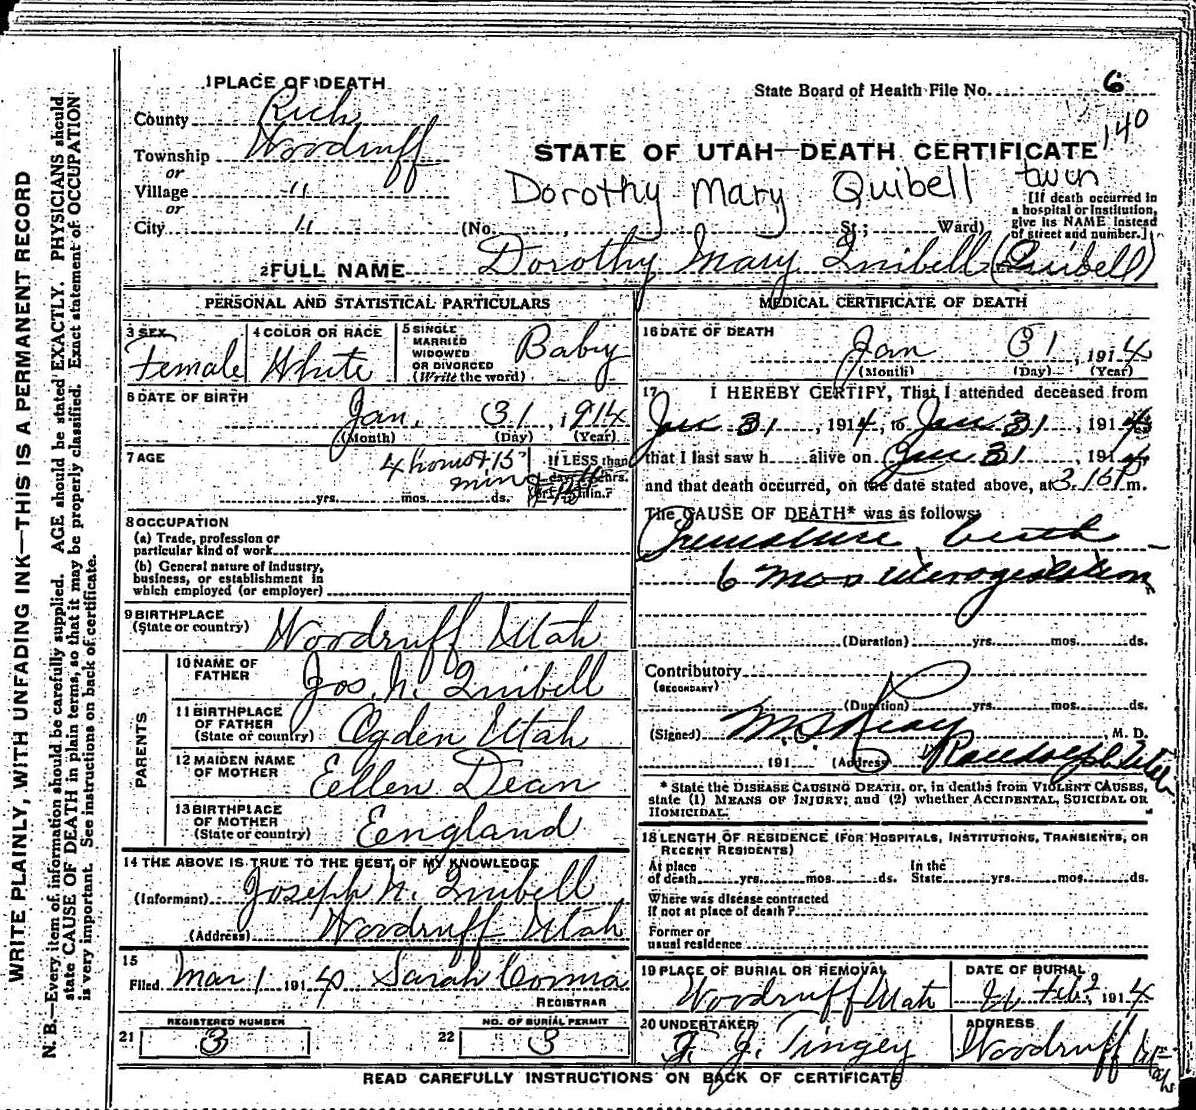 WRITE PLAINLY, WITH UNFADING INK—THIS IS A PERMANENT RECORD
N. B.—Every item of information should be carefully supplied. AGE should be stated EXACTLY. PHYSICIANS should
state CAUSE OF DEATH in plain terms, so that it may be properly classified. Exact statement of OCCUPATION
is very important. See instructions on back of certificate.
1 PLACE OF DEATH
State Board of Health File No. 6
140
County Rich
Township Woodruff
or
Village "
or
City "
STATE OF UTAH—DEATH CERTIFICATE
Dorothy Mary Quibell twin
[If death occurred in
a hospital or institution,
give its NAME instead
of street and number.]
(No. St.; Ward)
2 FULL NAME Dorothy Mary Quibell (Quibell)
PERSONAL AND STATISTICAL PARTICULARS
3 SEX
Female
4 COLOR OR RACE
White
5 SINGLE
MARRIED
WIDOWED
OR DIVORCED
(Write the word)
Baby
6 DATE OF BIRTH
Jan. 31, 1914
(Month) (Day) (Year)
7 AGE
4 hours & 15
min
yrs. mos. ds.
If LESS than
8 OCCUPATION
(a) Trade, profession or
particular kind of work
(b) General nature of industry,
business, or establishment in
which employed (or employer)
9 BIRTHPLACE
(State or country)
Woodruff Utah
PARENTS
10 NAME OF
FATHER
Jos. N. Quibell
11 BIRTHPLACE
OF FATHER
(State or country)
Ogden Utah
12 MAIDEN NAME
OF MOTHER
Eellen Dean
13 BIRTHPLACE
OF MOTHER
(State or country)
Eengland
14 THE ABOVE IS TRUE TO THE BEST OF MY KNOWLEDGE
(Informant) Joseph N. Quibell
(Address) Woodruff Utah
15
Filed Mar 1 1914 Sarah Cornia
REGISTRAR
21 REGISTERED NUMBER
3
22 NO. OF BURIAL PERMIT
3
MEDICAL CERTIFICATE OF DEATH
16 DATE OF DEATH
Jan 31, 1914
(Month) (Day) (Year)
17 I HEREBY CERTIFY, That I attended deceased from
Jan 31, 1914, to Jan 31, 1914
that I last saw h alive on Jan 31 1914
and that death occurred, on the date stated above, at 3.15 P m.
The CAUSE OF DEATH* was as follows:
Premature birth
6 mos uterogestation
(Duration) yrs. mos. ds.
Contributory
(SECONDARY)
(Duration) yrs. mos. ds.
(Signed) M. D.
191 (Address) Randolph Utah
* State the DISEASE CAUSING DEATH, or, in deaths from VIOLENT CAUSES,
state (1) MEANS OF INJURY; and (2) whether ACCIDENTAL, SUICIDAL OR
HOMICIDAL.
18 LENGTH OF RESIDENCE (FOR HOSPITALS, INSTITUTIONS, TRANSIENTS, OR
RECENT RESIDENTS)
At place
of death yrs. mos. ds.
In the
State yrs. mos. ds.
Where was disease contracted
if not at place of death?
Former or
usual residence
19 PLACE OF BURIAL OR REMOVAL
Woodruff Utah
DATE OF BURIAL
Feb 2 1914
20 UNDERTAKER
J. J. Tingey
ADDRESS
Woodruff Utah
READ CAREFULLY INSTRUCTIONS ON BACK OF CERTIFICATE